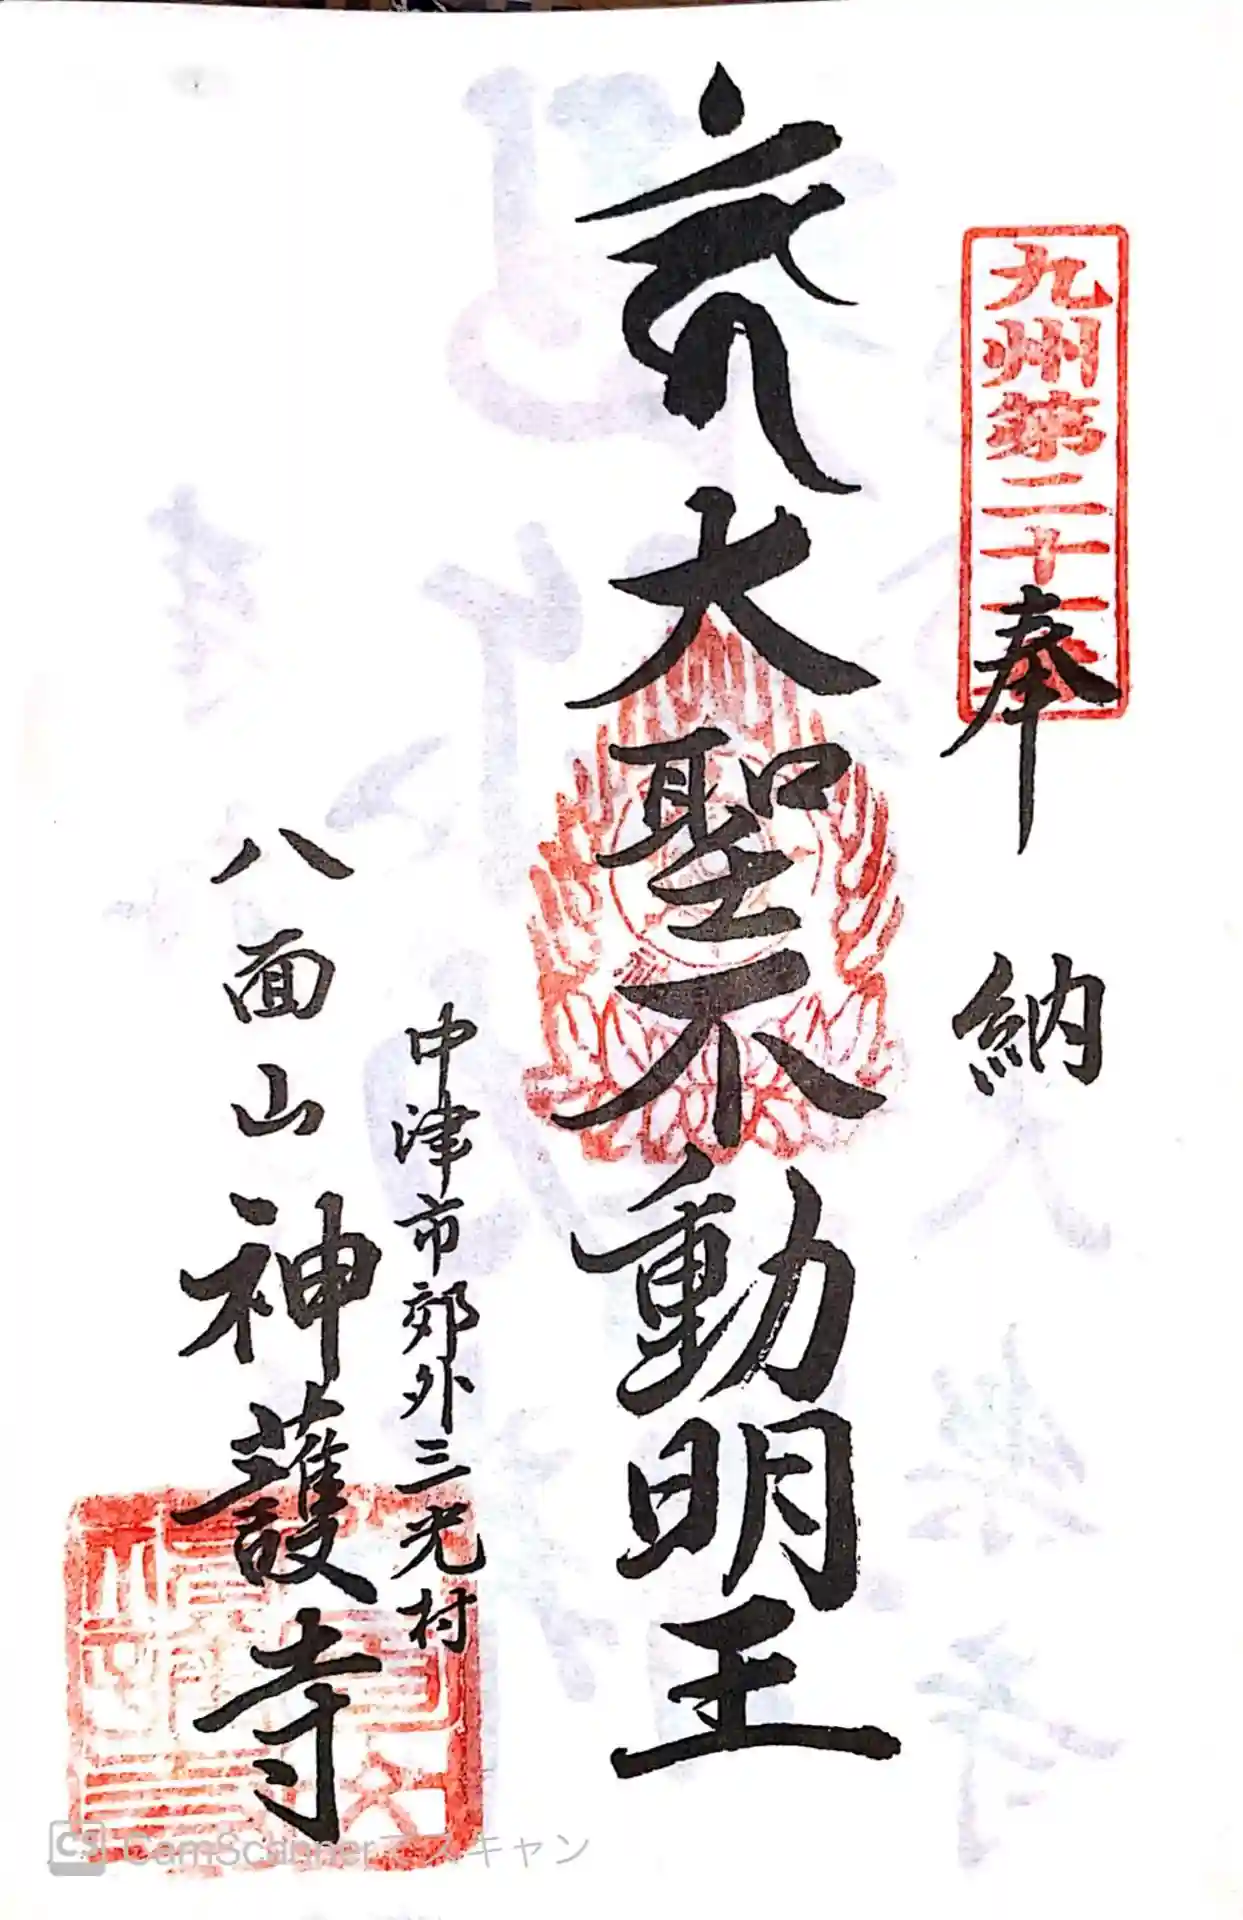 九州第二十一番
奉納
大聖不動明王
中津市郊外三光村
八面山神護寺
CamScannerでスキャン